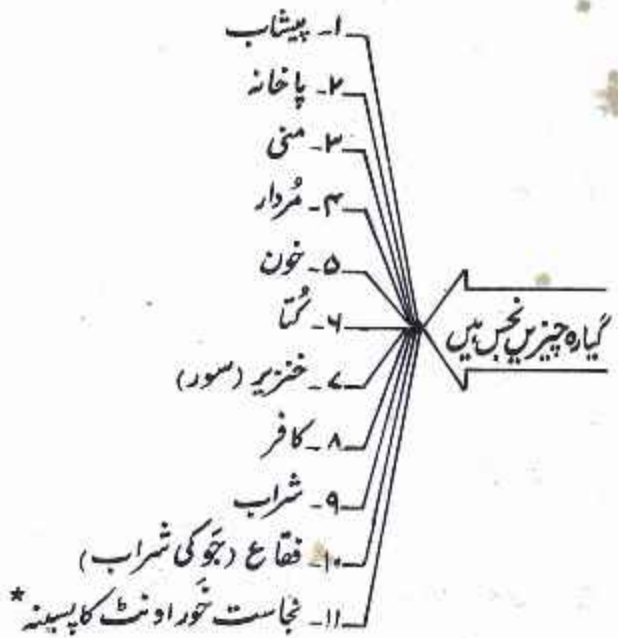 گیارہ چیزیں نجس ہیں
۱۔ پیشاب
۲۔ پاخانہ
۳۔ منی
۴۔ مُردار
۵۔ خون
۶۔ کُتا
۷۔ خنزیر (سور)
۸۔ کافر
۹۔ شراب
۱۰۔ فقاع (جَو کی شراب)
۱۱۔ نجاست خَور اونٹ کا پسینہ *